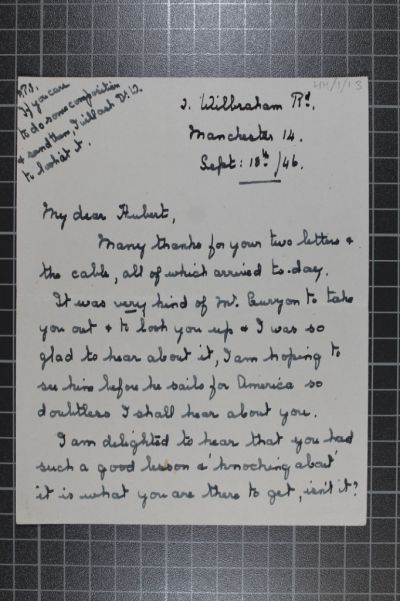 P.P.S.
If you care
to do some composition
& send them, I will ask Dr. W.
to look at it.
HH/1/13
2. Wilbraham Rd.
Manchester 14.
Sept: 18th/46.
My dear Hubert,
Many thanks for your two letters &
the cable, all of which arrived to-day.
It was very kind of Mr. Euryon to take
you out & to look you up & I was so
glad to hear about it, I am hoping to
see him before he sails for America so
doubtless I shall hear about you.
I am delighted to hear that you had
such a good lesson & 'knocking about'
it is what you are there to get, isn't it?